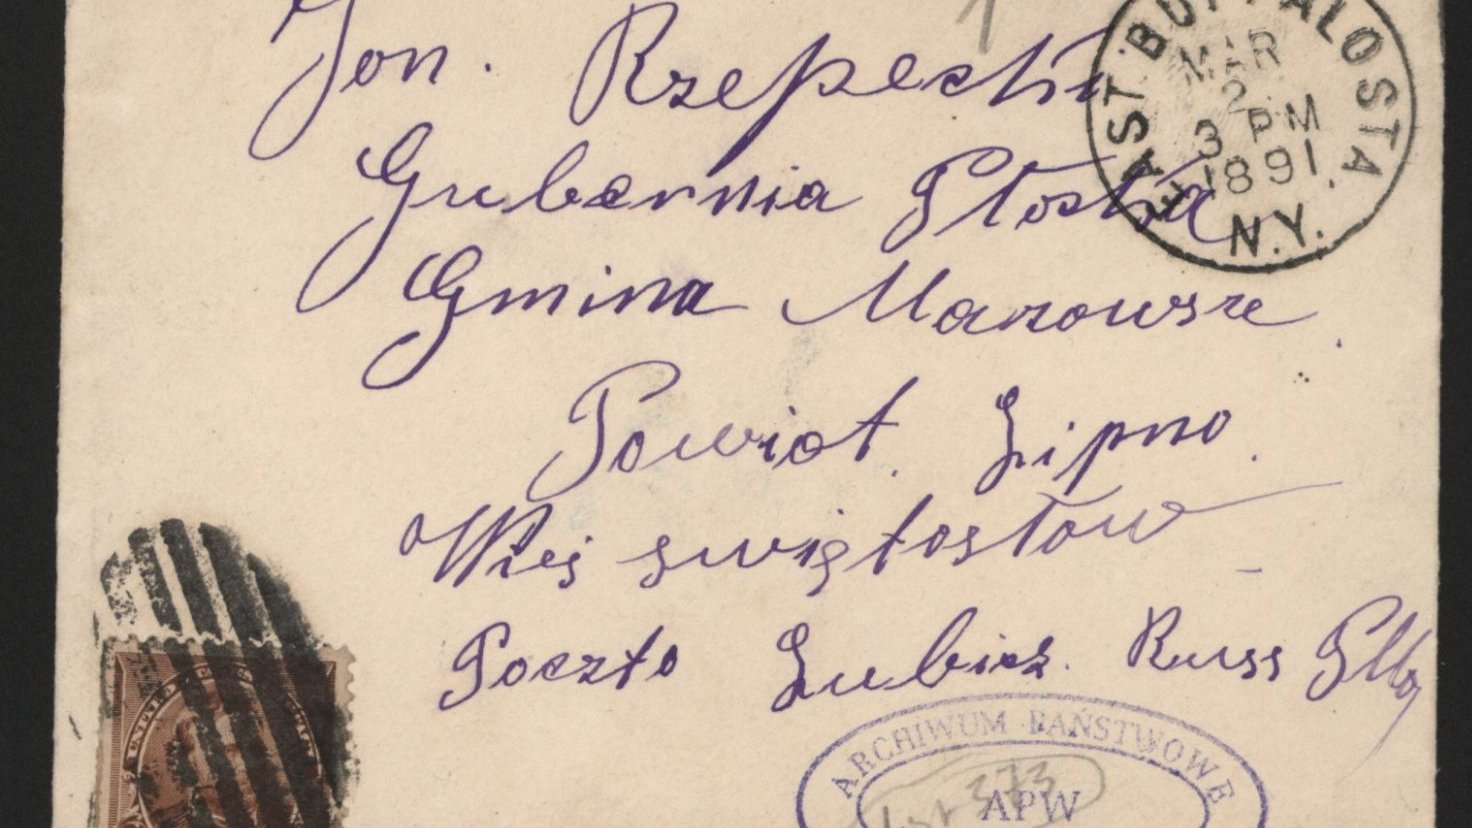 Jon. Rzepecki
Gubernia Płoska
Gmina Mazowsze
Powiat Lipno
Wieś swiętosław
Poczta Lubicz. Russ
EAST BUFFALO STA.
MAR
2
3 PM
1891.
N.Y.
ARCHIWUM PAŃSTWOWE
APW
list 373